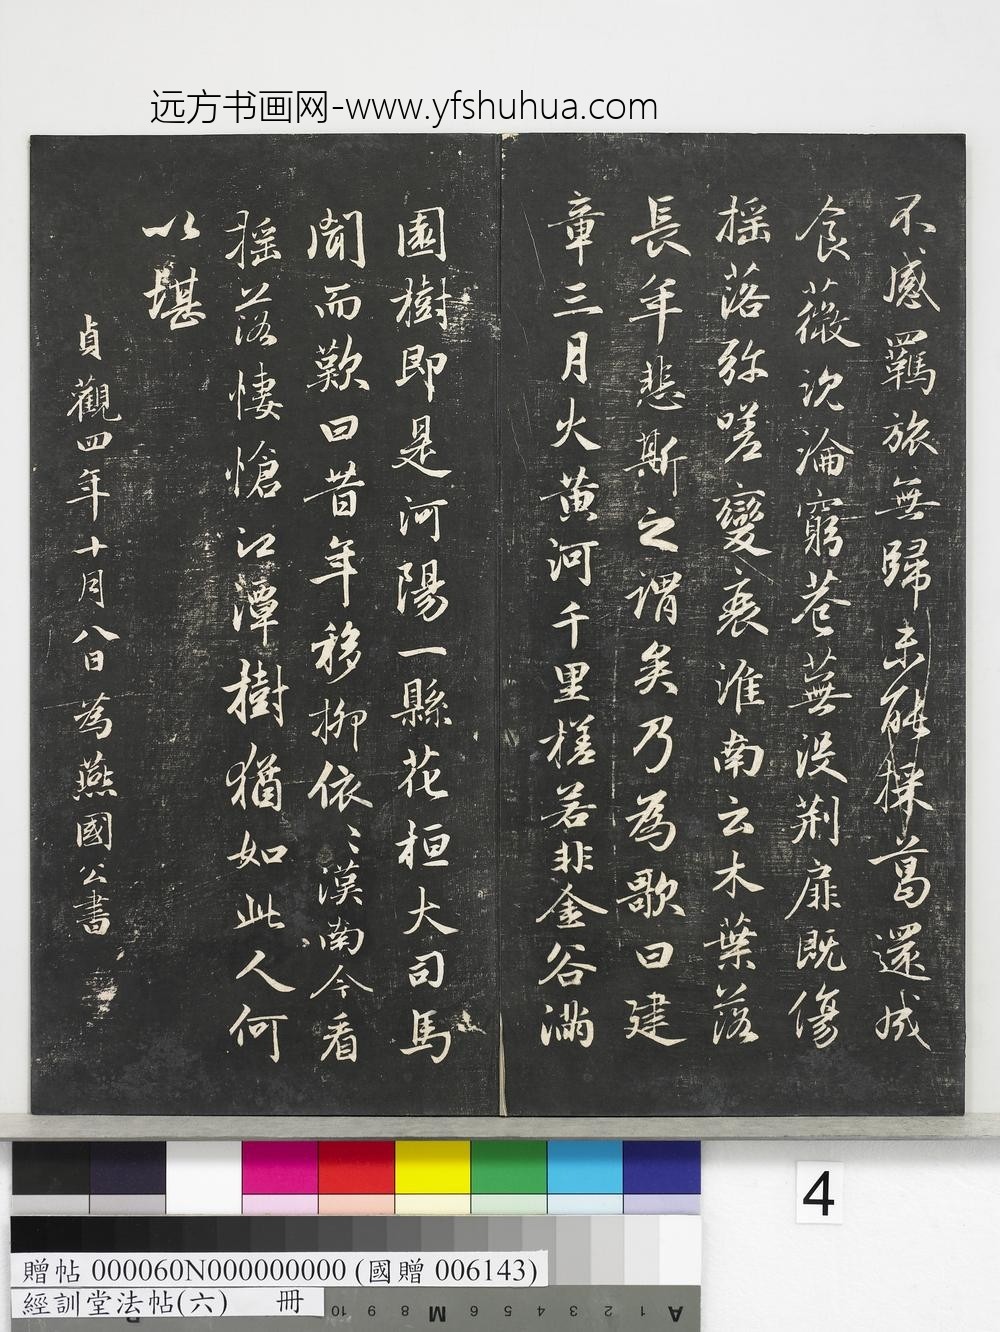 远方书画网-www.yfshuhua.com
不感羈旅無歸未能採葛還成
食薇沉淪窮巷蕪没荆扉既傷
搖落弥嗟變衰淮南云木葉落
長年悲斯之謂矣乃為歌曰建
章三月火黄河千里槎若非金谷滿
園樹即是河陽一縣花桓大司馬
聞而歎曰昔年移柳依〻漢南今看
搖落悽愴江潭樹猶如此人何
以堪
貞觀四年十月八日為燕國公書
4
贈帖 000060N000000000 (國贈 006143)
經訓堂法帖(六) 冊
10 9 8 M 6 5 4 3 2 1 A